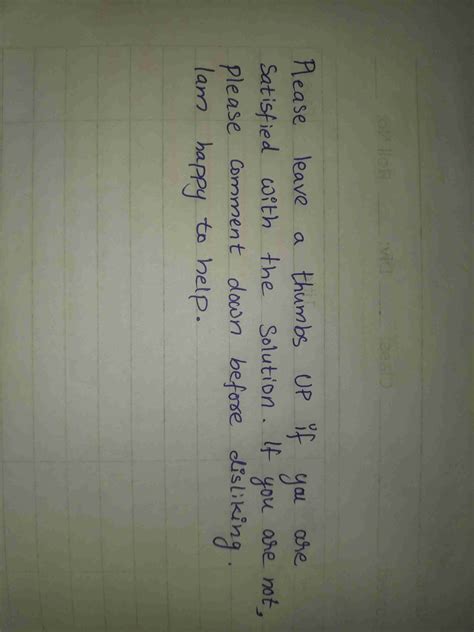 Please leave a thumbs UP if you are
Satisfied with the Solution. If you are not,
Please Comment down before disliking.
I am happy to help.